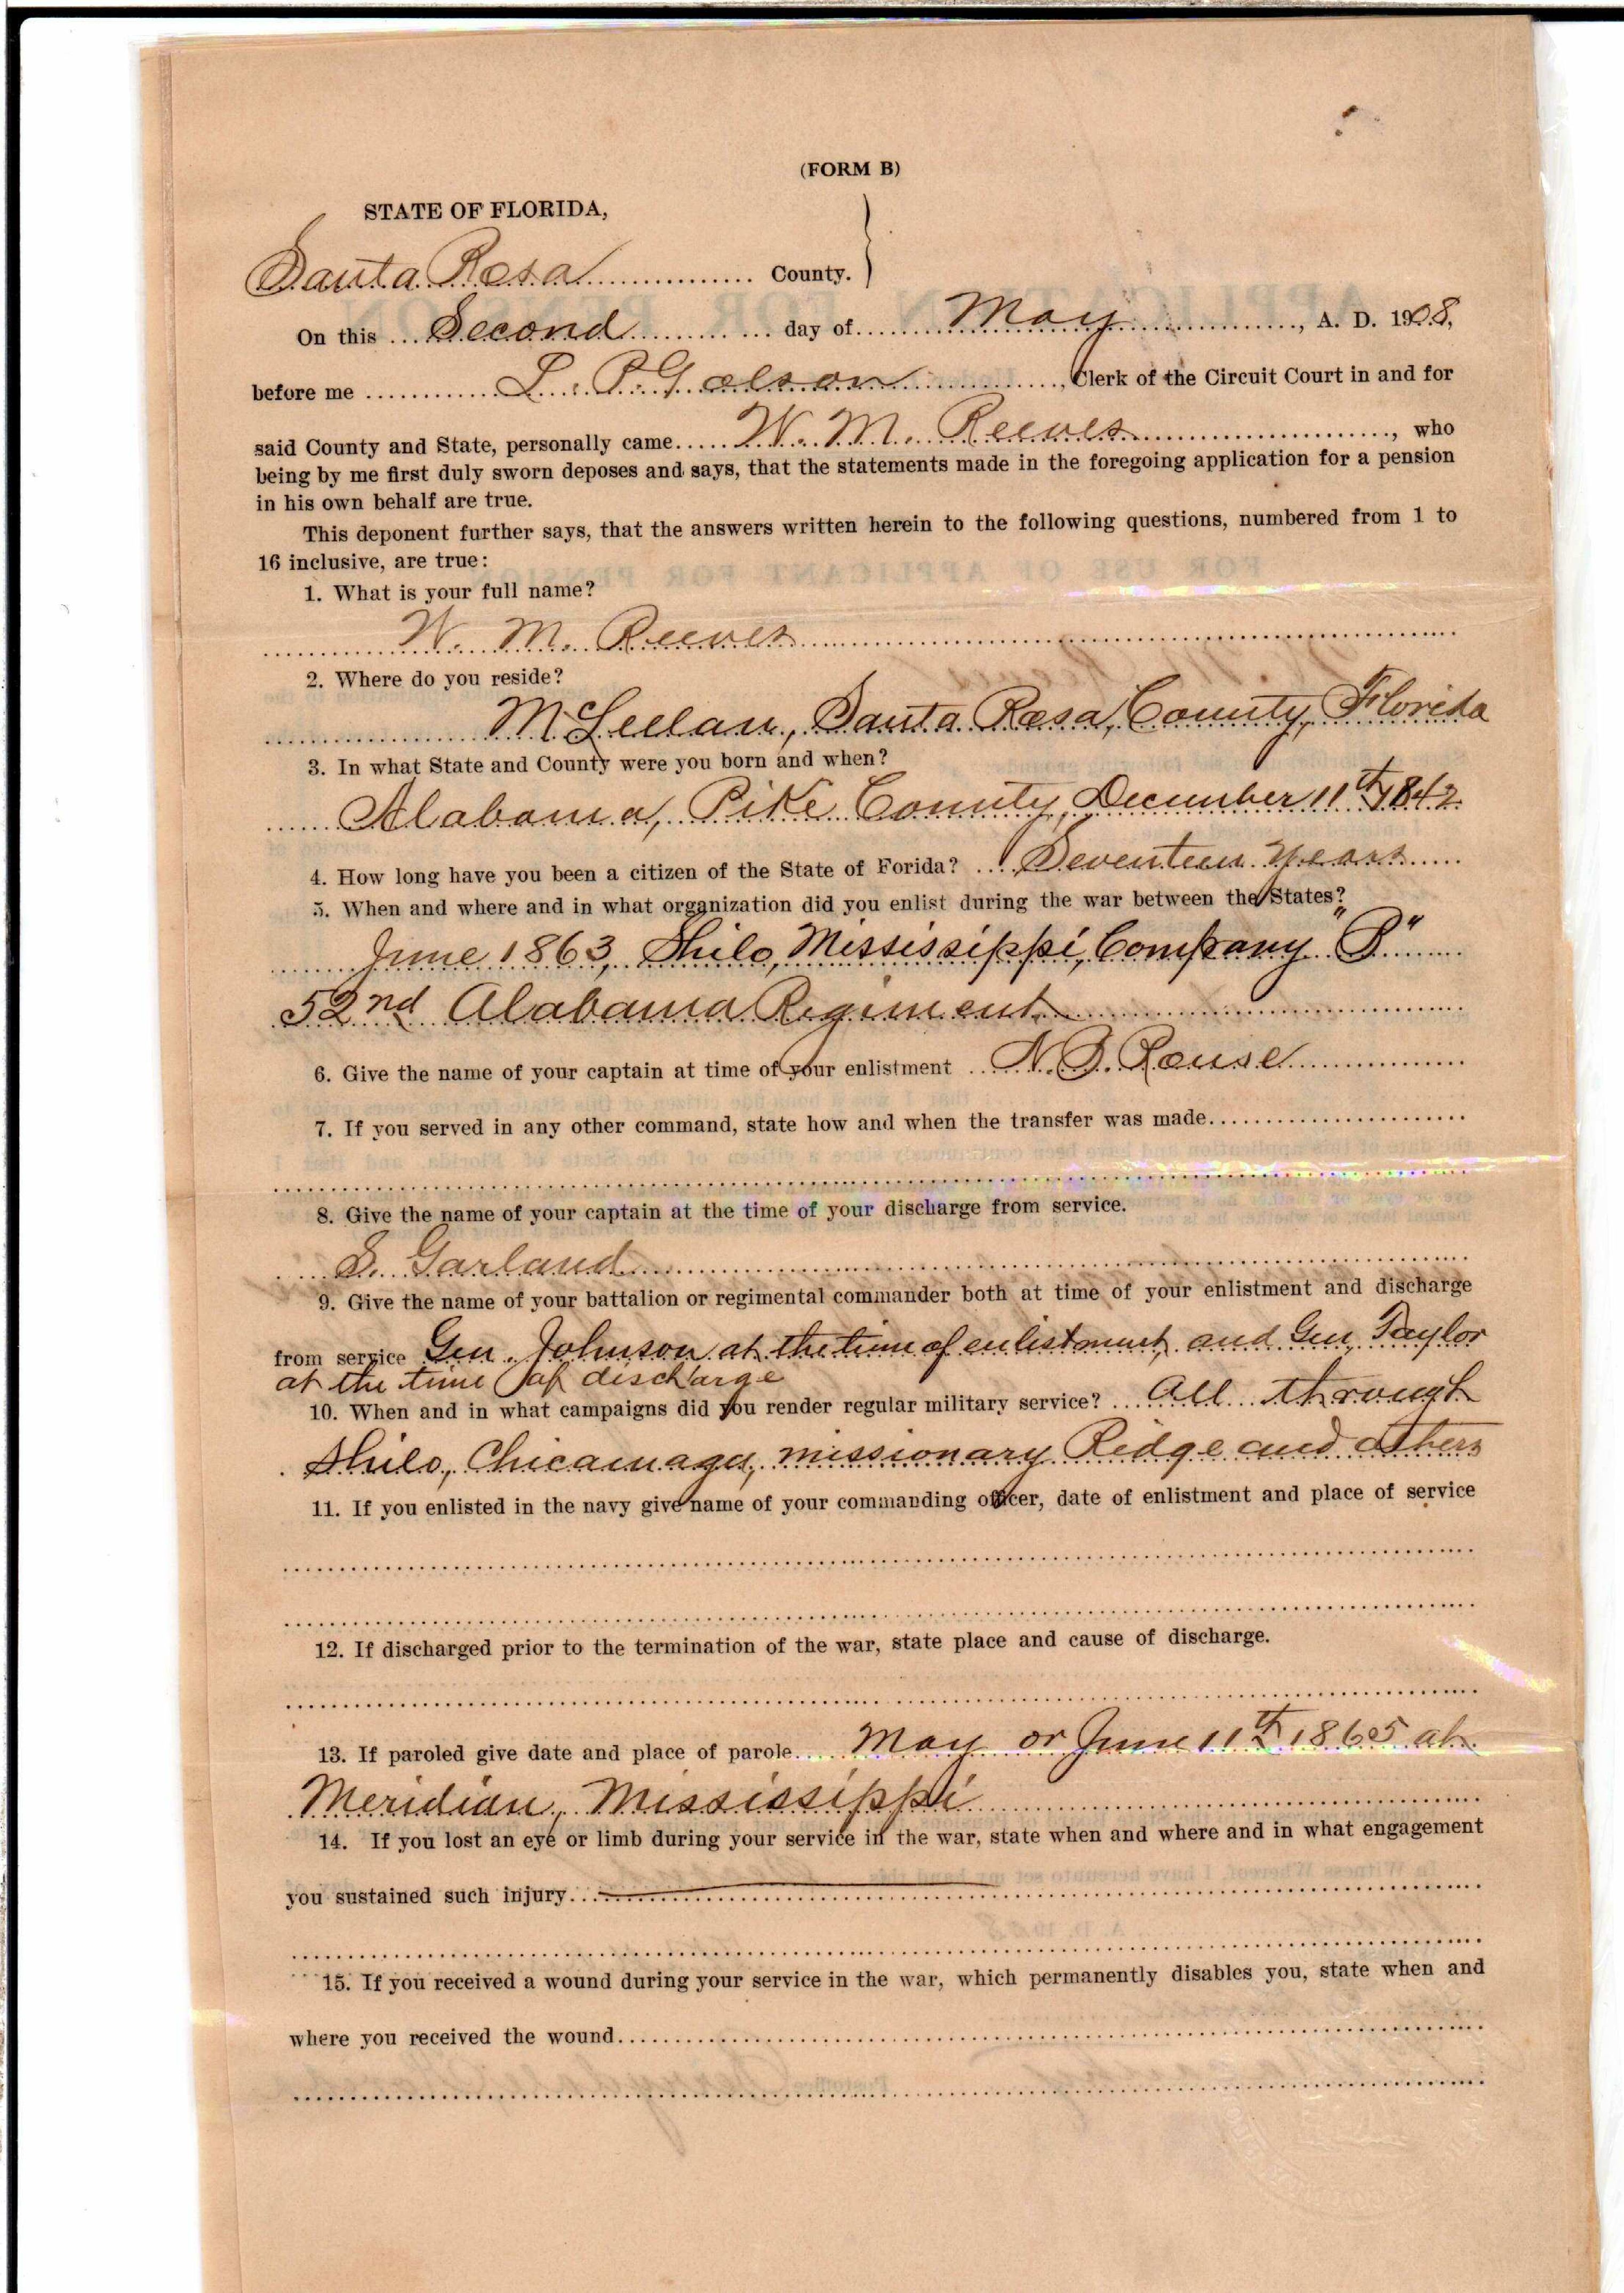 (FORM B)
STATE OF FLORIDA,
Santa Rosa County.
On this Second day of May, A. D. 1908,
before me L. P. Golson, Clerk of the Circuit Court in and for
said County and State, personally came W. M. Reeves, who
being by me first duly sworn deposes and says, that the statements made in the foregoing application for a pension
in his own behalf are true.
This deponent further says, that the answers written herein to the following questions, numbered from 1 to
16 inclusive, are true:
1. What is your full name?
W. M. Reeves
2. Where do you reside?
McLellan, Santa Rosa, County, Florida
3. In what State and County were you born and when?
Alabama, Pike County, December 11th 1842
4. How long have you been a citizen of the State of Forida? Seventeen Years
5. When and where and in what organization did you enlist during the war between the States?
June 1863, Shilo, Mississippi, Company "B"
52nd Alabama Regiment
6. Give the name of your captain at time of your enlistment N. B. Rouse
7. If you served in any other command, state how and when the transfer was made
8. Give the name of your captain at the time of your discharge from service.
S. Garland
9. Give the name of your battalion or regimental commander both at time of your enlistment and discharge
from service Gen. Johnson at the time of enlistment, and Gen. Taylor
at the time of discharge
10. When and in what campaigns did you render regular military service? All through
Shilo, Chicamaga, missionary Ridge and others
11. If you enlisted in the navy give name of your commanding officer, date of enlistment and place of service
12. If discharged prior to the termination of the war, state place and cause of discharge.
13. If paroled give date and place of parole May or June 11th 1865 at
Meridian, Mississippi
14. If you lost an eye or limb during your service in the war, state when and where and in what engagement
you sustained such injury
15. If you received a wound during your service in the war, which permanently disables you, state when and
where you received the wound